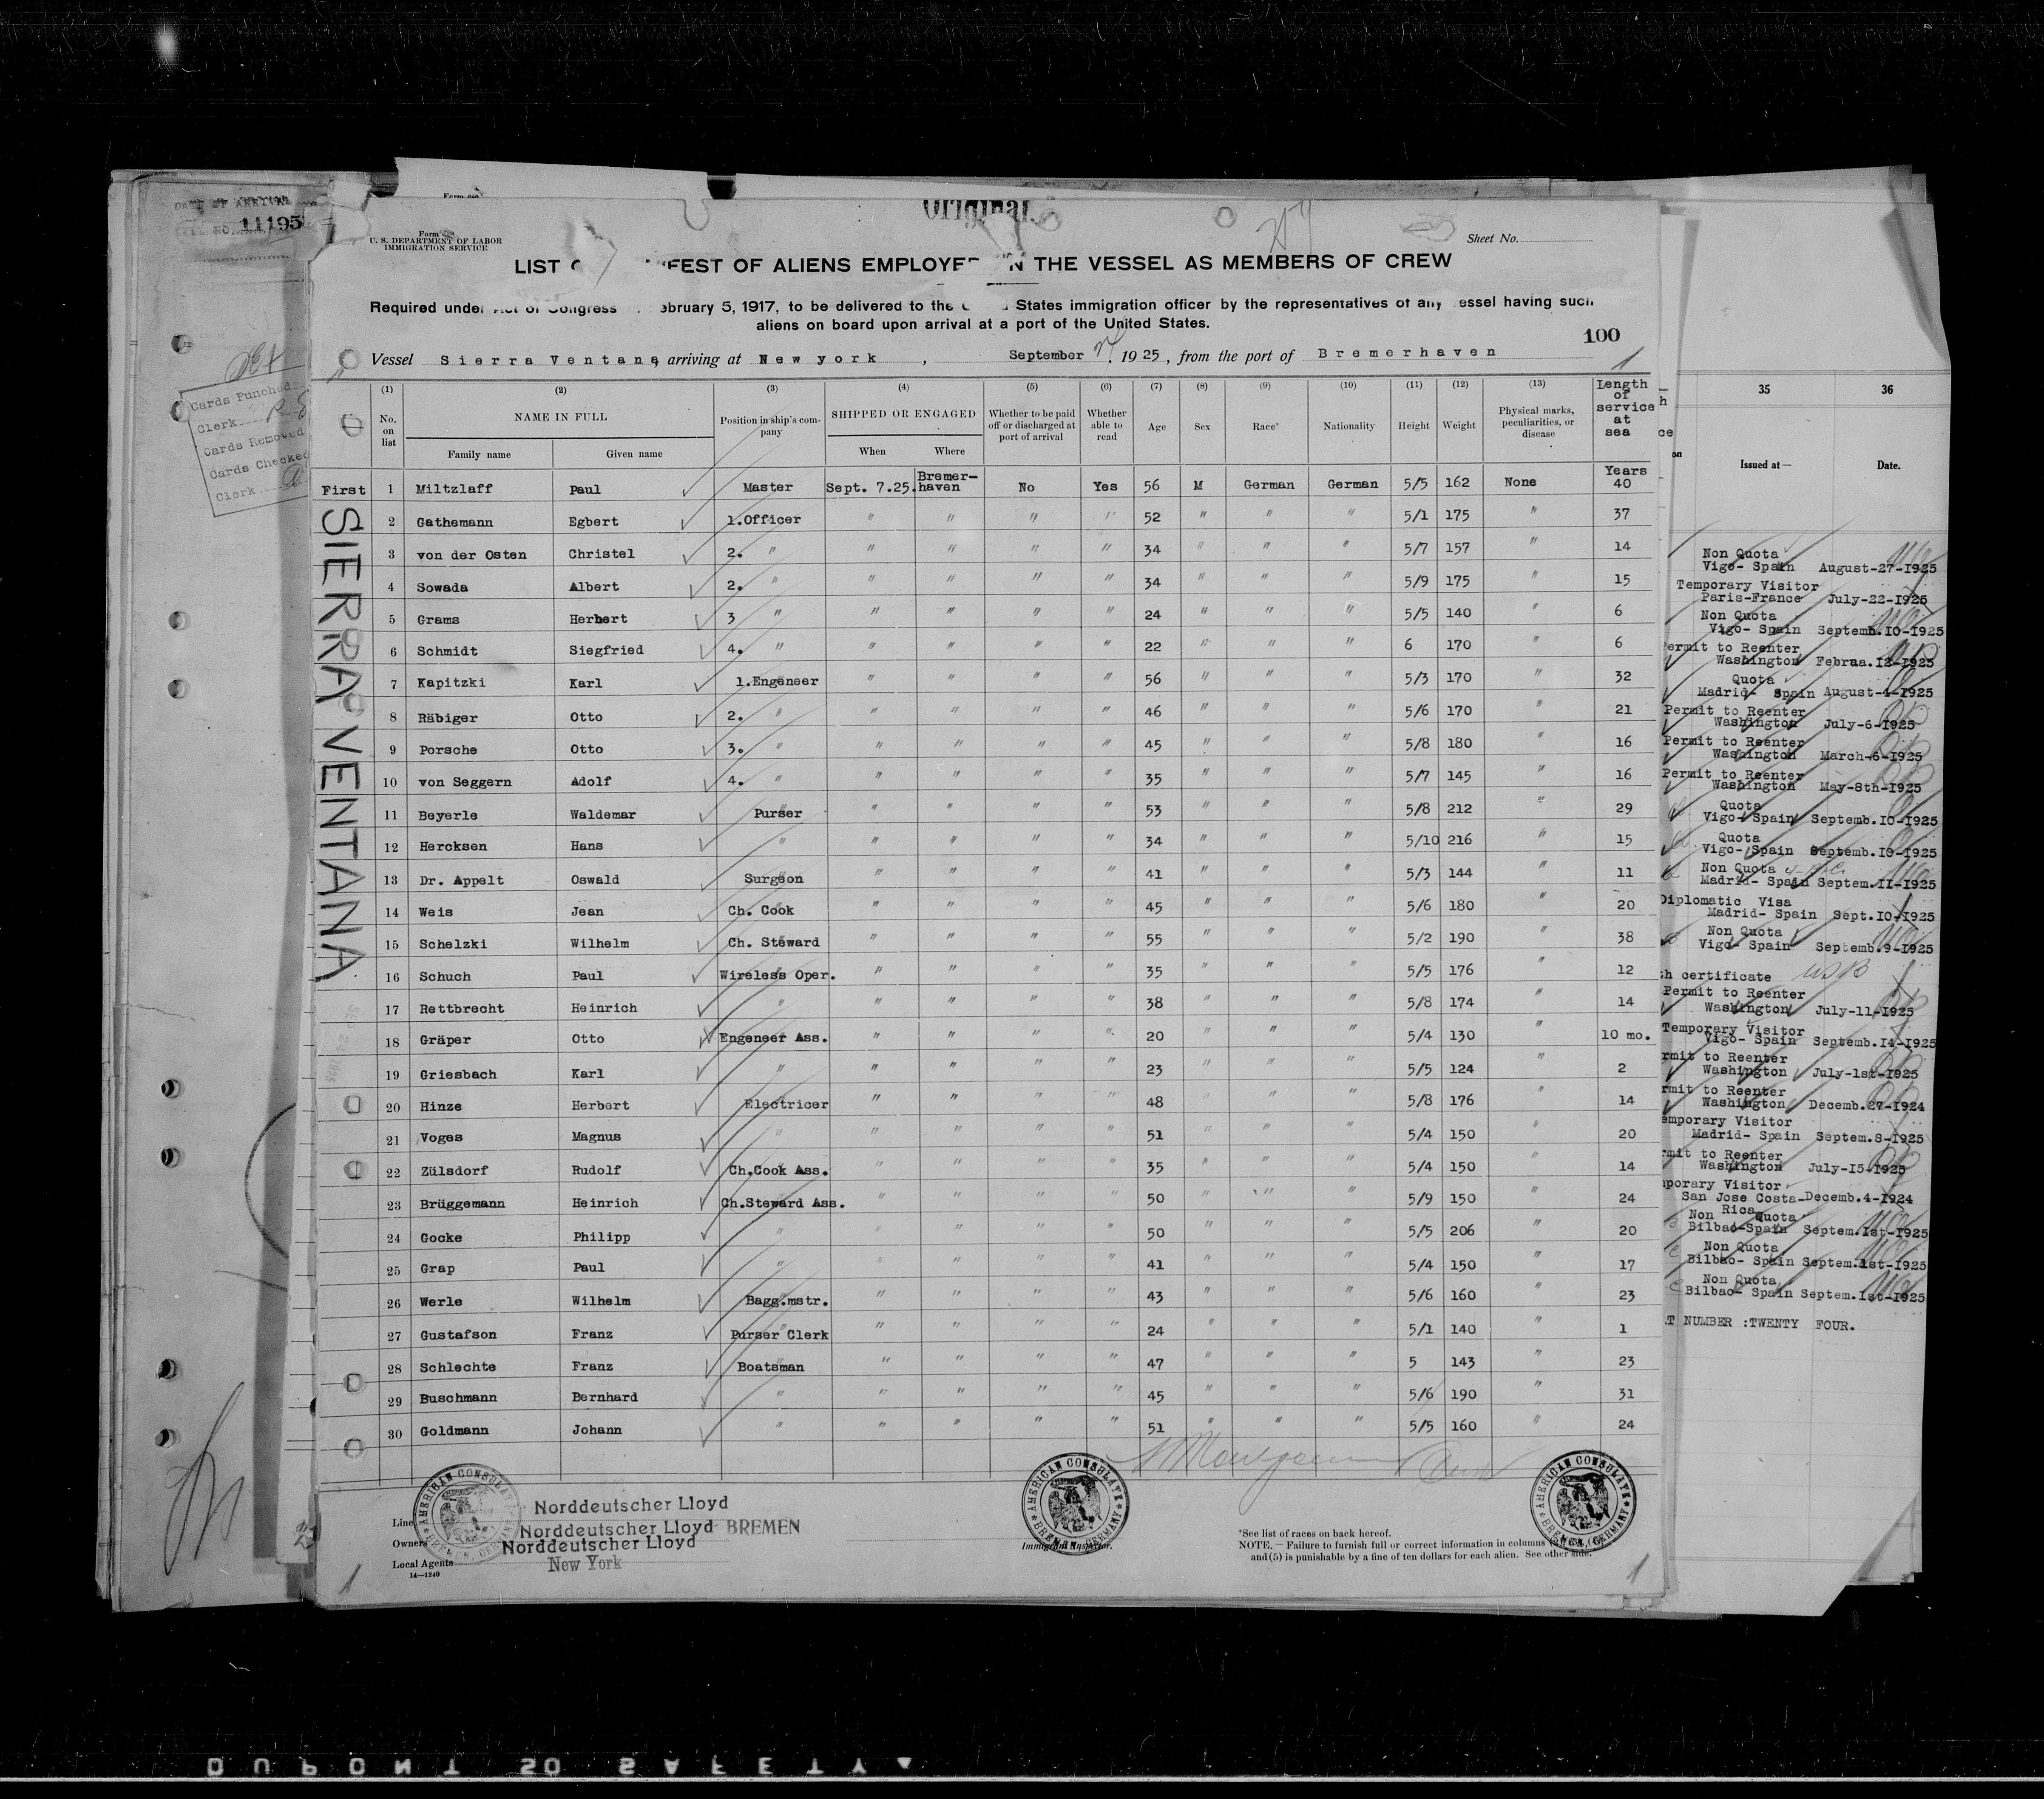 DATE OF ARRIVAL
NO. 11195
Set
Cards Punched
Clerk
Cards Removed
Cards Checked
Clerk
Original
Form
U. S. DEPARTMENT OF LABOR
IMMIGRATION SERVICE
Sheet No.
LIST FEST OF ALIENS EMPLOYE N THE VESSEL AS MEMBERS OF CREW
Required under Act of Congress bruary 5, 1917, to be delivered to the States immigration officer by the representatives of any essel having such
aliens on board upon arrival at a port of the United States.
100
Vessel Sierra Ventana, arriving at New york, September 1925, from the port of Bremerhaven
1
(1) (2) (3) (4) (5) (6) (7) (8) (9) (10) (11) (12) (13)
No. on list NAME IN FULL Family name Given name Position in ship's company SHIPPED OR ENGAGED When Where Whether to be paid off or discharged at port of arrival Whether able to read Age Sex Race* Nationality Height Weight Physical marks, peculiarities, or disease Length of service at sea
First 1 Miltzlaff Paul Master Sept. 7.25. Bremerhaven No Yes 56 M German German 5/5 162 None Years 40
2 Gathemann Egbert 1.Officer " " " " 52 " " " 5/1 175 " 37
3 von der Osten Christel 2. " " " " " 34 " " " 5/7 157 " 14
4 Sowada Albert 2. " " " " " 34 " " " 5/9 175 " 15
5 Grams Herbert 3 " " " " " 24 " " " 5/5 140 " 6
6 Schmidt Siegfried 4. " " " " " 22 " " " 6 170 " 6
7 Kapitzki Karl 1.Engeneer " " " " 56 " " " 5/3 170 " 32
8 Räbiger Otto 2. " " " " " 46 " " " 5/6 170 " 21
9 Porsche Otto 3. " " " " " 45 " " " 5/8 180 " 16
10 von Seggern Adolf 4. " " " " " 35 " " " 5/7 145 " 16
11 Beyerle Waldemar Purser " " " " 53 " " " 5/8 212 " 29
12 Hercksen Hans " " " " " 34 " " " 5/10 216 " 15
13 Dr. Appelt Oswald Surgeon " " " " 41 " " " 5/3 144 " 11
14 Weis Jean Ch. Cook " " " " 45 " " " 5/6 180 " 20
15 Schelzki Wilhelm Ch. Steward " " " " 55 " " " 5/2 190 " 38
16 Schuch Paul Wireless Oper. " " " " 35 " " " 5/5 176 " 12
17 Rettbrecht Heinrich " " " " " 38 " " " 5/8 174 " 14
18 Gräper Otto Engeneer Ass. " " " " 20 " " " 5/4 130 " 10 mo.
19 Griesbach Karl " " " " " 23 " " " 5/5 124 " 2
20 Hinze Herbert Electricer " " " " 48 " " " 5/8 176 " 14
21 Voges Magnus " " " " " 51 " " " 5/4 150 " 20
22 Zülsdorf Rudolf Ch.Cook Ass. " " " " 35 " " " 5/4 150 " 14
23 Brüggemann Heinrich Ch.Steward Ass. " " " " 50 " " " 5/9 150 " 24
24 Gocke Philipp " " " " " 50 " " " 5/5 206 " 20
25 Grap Paul " " " " " 41 " " " 5/4 150 " 17
26 Werle Wilhelm Bagg.mstr. " " " " 43 " " " 5/6 160 " 23
27 Gustafson Franz Purser Clerk " " " " 24 " " " 5/1 140 " 1
28 Schlechte Franz Boatsman " " " " 47 " " " 5 143 " 23
29 Buschmann Bernhard " " " " " 45 " " " 5/6 190 " 31
30 Goldmann Johann " " " " " 51 " " " 5/5 160 " 24
SIERRA VENTANA
Line Norddeutscher Lloyd
Owners Norddeutscher Lloyd BREMEN
Local Agents Norddeutscher Lloyd
New York
14—1240
AMERICAN CONSULATE BREMEN, GERMANY
AMERICAN CONSULATE BREMEN, GERMANY
AMERICAN CONSULATE BREMEN, GERMANY
Immigrant Inspector.
*See list of races on back hereof.
NOTE.—Failure to furnish full or correct information in columns
and (5) is punishable by a fine of ten dollars for each alien. See other side.
1 1
35 36
Issued at— Date.
Non Quota
Vigo- Spain August-27-1925
Temporary Visitor
Paris-France July-22-1925
Non Quota
Vigo- Spain Septemb.10-1925
ermit to Reenter
Washington Februa.12-1925
Quota
Madrid- Spain August-4-1925
Permit to Reenter
Washington July-6-1925
Permit to Reenter
Washington March-6-1925
Permit to Reenter
Washington May-8th-1925
Quota
Vigo-Spain Septemb.10-1925
Quota
Vigo- Spain Septemb.10-1925
Non Quota
Madrid- Spain Septem.11-1925
Diplomatic Visa
Madrid- Spain Sept.10-1925
Non Quota
Vigo- Spain Septemb.9-1925
h certificate USB
Permit to Reenter
Washington July-11-1925
Temporary Visitor
Vigo- Spain Septemb.14-1925
rmit to Reenter
Washington July-1st-1925
rmit to Reenter
Washington Decemb.27-1924
emporary Visitor
Madrid- Spain Septem.8-1925
rmit to Reenter
Washington July-15-1925
mporary Visitor
San Jose Costa-Decemb.4-1924
Rica
Non Quota
Bilbao-Spain Septem.1st-1925
Non Quota
Bilbao- Spain Septem.1st-1925
Non Quota
Bilbao- Spain Septem.1st-1925
T NUMBER :TWENTY FOUR.
DUPONT SO SAFETY